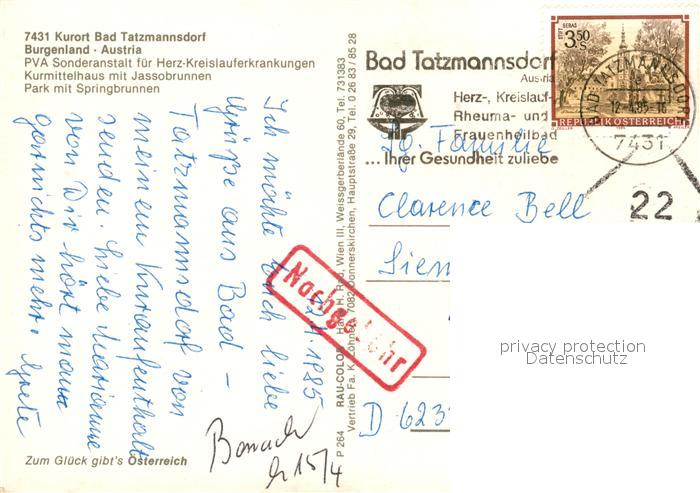 7431 Kurort Bad Tatzmannsdorf
Burgenland · Austria
PVA Sonderanstalt für Herz-Kreislauferkrankungen
Kurmittelhaus mit Jassobrunnen
Park mit Springbrunnen
Ich möchte Euch liebe
Grüße aus Bad -
Tatzmannsdorf von
mein ein Kuraufenthalt
senden. Liebe Marianne
von Dir hört man
garnichts mehr. Grete
4.1985
Zum Glück gibt's Österreich
P 264 RAU-COLOR Wien III, Weissgerberlände 60, Tel. 731383
Vertrieb Fa. K. 7082 Donnerskirchen, Hauptstraße 29, Tel. 0 26 83 / 85 28
Bad Tatzmannsdorf
Austria
Herz-, Kreislauf-
Rheuma- und
Frauenheilbad
... Ihrer Gesundheit zuliebe
STIFT GERAS
3.50 S
REPUBLIK ÖSTERREICH
BAD TATZMANNSDORF
12.-4.85-16
7431
22
Familie
Clarence Bell
D 623
15/4
privacy protection
Datenschutz